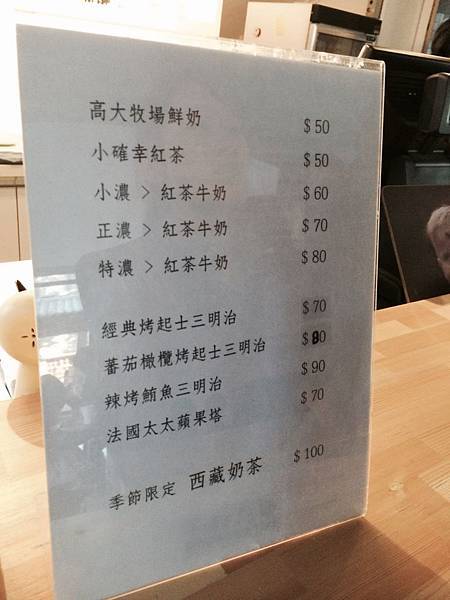 高大牧場鮮奶 $50
小確幸紅茶 $50
小濃 > 紅茶牛奶 $60
正濃 > 紅茶牛奶 $70
特濃 > 紅茶牛奶 $80
經典烤起士三明治 $70
蕃茄橄欖烤起士三明治 $80
辣烤鮪魚三明治 $90
法國太太蘋果塔 $70
季節限定 西藏奶茶 $100